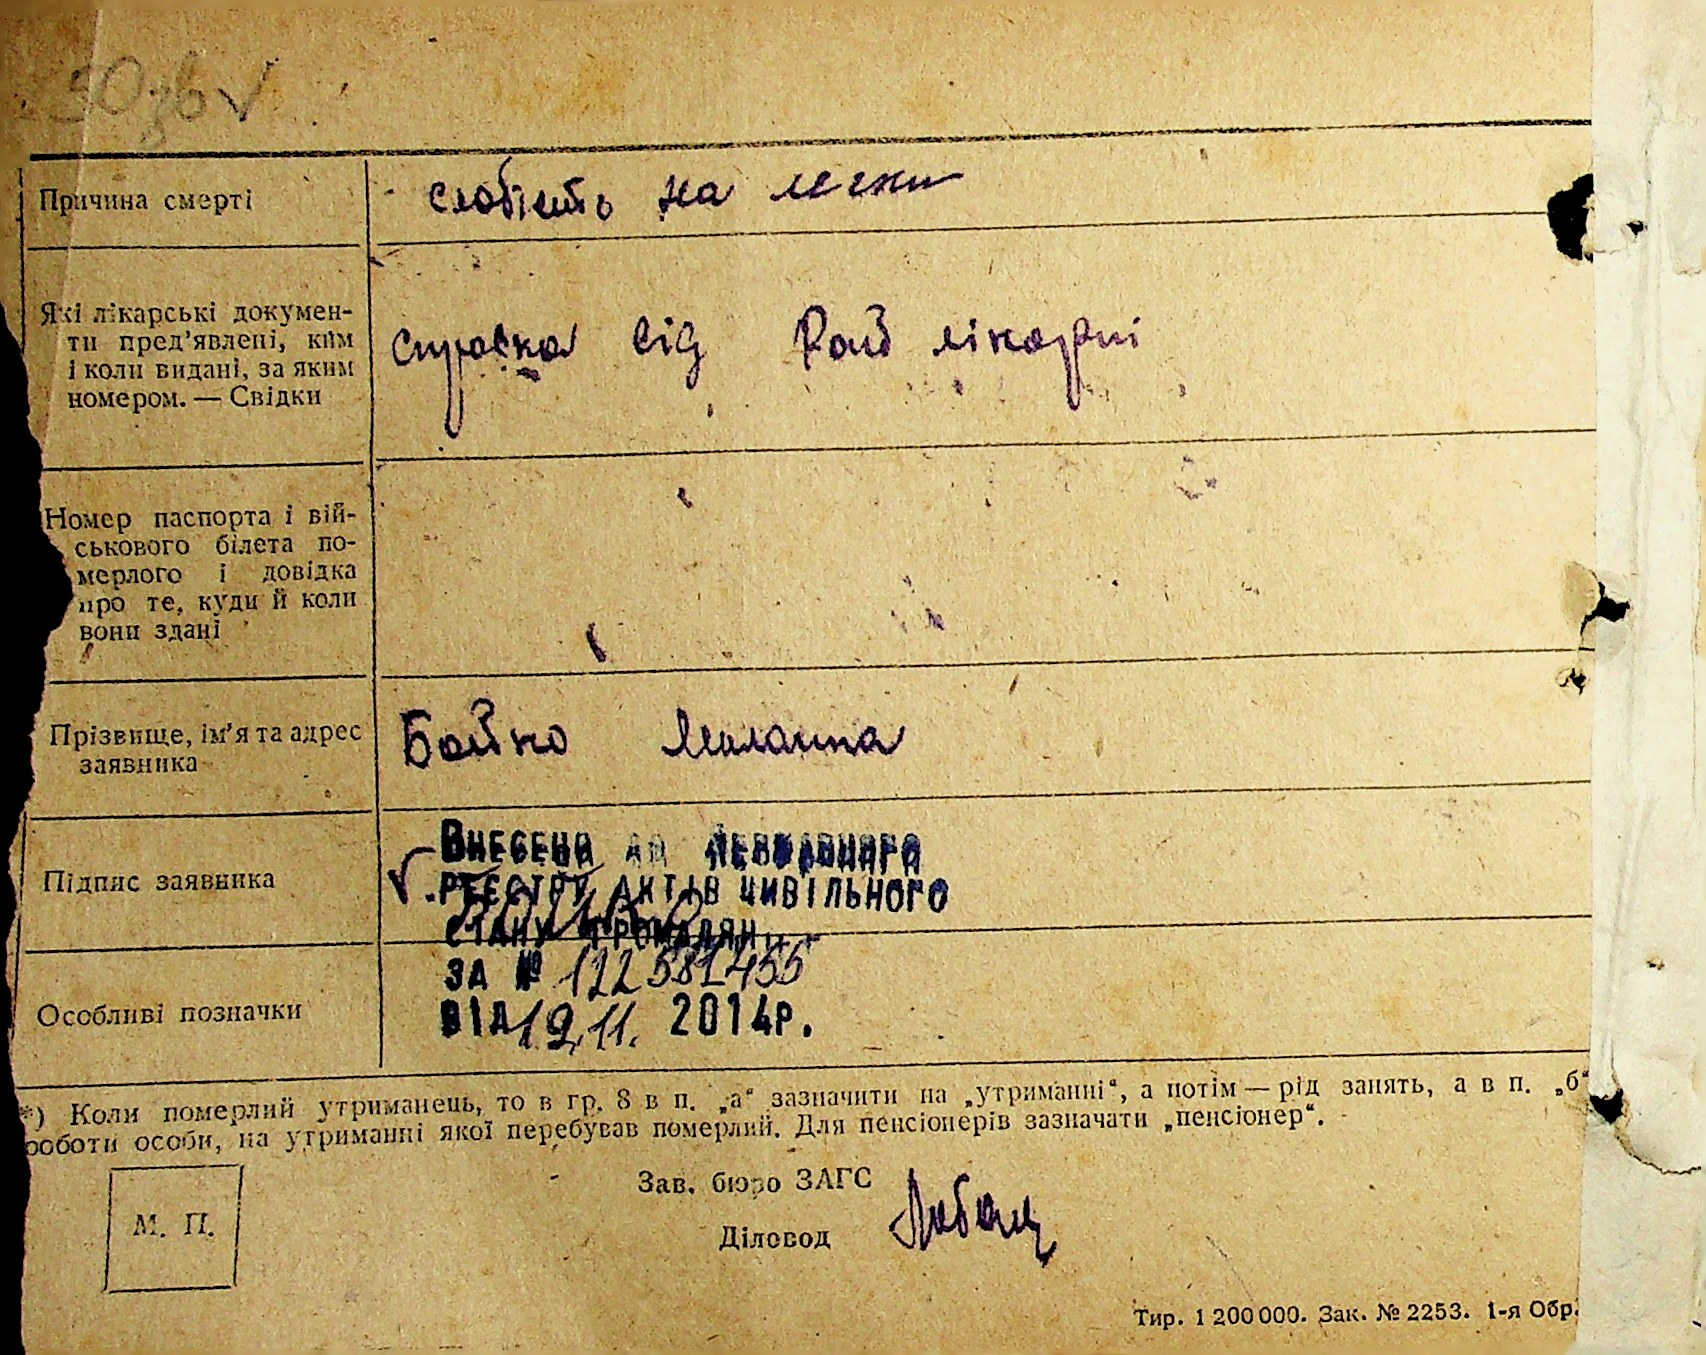 Причина смерті
слабість на легки
Які лікарські докумен-
ти пред’явлені, ким
і коли видані, за яким
номером. — Свідки
справка від Рай лікарні
Номер паспорта і вій-
ськового білета по-
мерлого і довідка
про те, куди й коли
вони здані
Прізвище, ім’я та адрес
заявника
Бойко Миланка
Підпис заявника
Внесено до Державного
реєстру актів цивільного
стану громадян
за № 122581455
від 19.11. 2014р.
Особливі позначки
*) Коли померлий утриманець, то в гр. 8 в п. „а“ зазначити на „утриманні“, а потім — рід занять, а в п. „б“
роботи особи, на утриманні якої перебував померлий. Для пенсіонерів зазначати „пенсіонер“.
М. П.
Зав. бюро ЗАГС
Діловод
Тир. 1 200 000. Зак. № 2253. 1-я Обр.